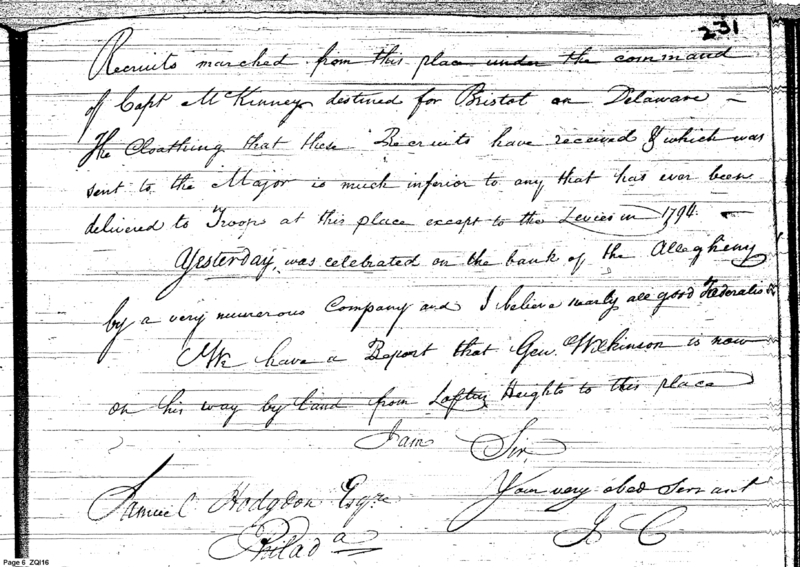 231
Recruits marched from this place under the command
of Capt McKinney destined for Bristol on Delaware –
The Cloathing that these Recruits have received & which was
sent to the Major is much inferior to any that has ever been
delivered to Troops at this place except to the Levies in 1794. –
Yesterday, was celebrated on the bank of the Allegheny
by a very numerous Company and I believe nearly all good Federalists
We have a Report that Gen. Wilkinson is now
on his way by land from Loftus Heights to this place
I am Sir,
Your very obed Servant
J C
Samuel Hodgdon Esqre
Philada
Page 6 ZQI16